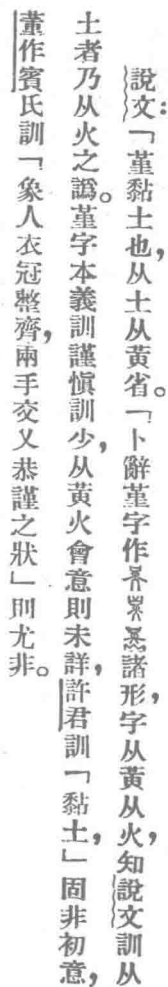 說文：「堇黏土也，从土从黃省。「卜辭堇字作諸形，字从黃从火，知說文訓从
土者乃从火之譌。堇字本義訓謹愼訓少，从黃火會意則未詳，許君訓「黏土，」固非初意，
董作賓氏訓「象人衣冠整齊，兩手交叉恭謹之狀」則尤非。